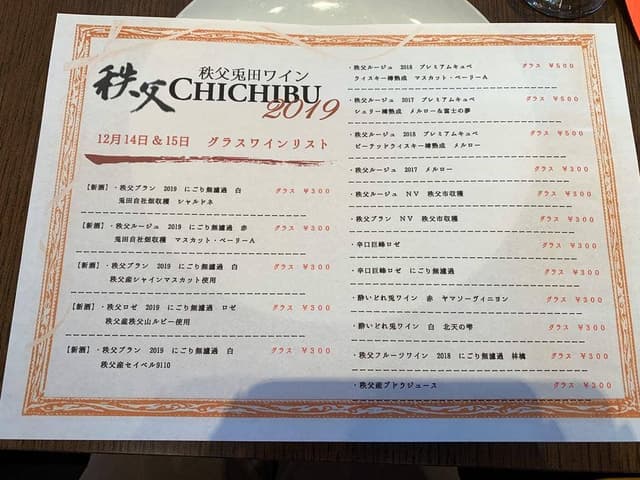 秩父兎田ワイン
秩父 CHICHIBU
2019
12月14日&15日 グラスワインリスト
【新酒】・秩父ブラン 2019 にごり無濾過 白 グラス ¥300
兎田自社畑収穫 シャルドネ
【新酒】・秩父ルージュ 2019 にごり無濾過 赤 グラス ¥300
兎田自社畑収穫 マスカット・ベーリーA
【新酒】・秩父ブラン 2019 にごり無濾過 白 グラス ¥300
秩父産シャインマスカット使用
【新酒】・秩父ロゼ 2019 にごり無濾過 ロゼ グラス ¥300
秩父産秩父山ルビー使用
【新酒】・秩父ブラン 2019 にごり無濾過 白 グラス ¥300
秩父産セイベル9110
・秩父ルージュ 2018 プレミアムキュベ グラス ¥500
ウィスキー樽熟成 マスカット・ベーリーA
・秩父ルージュ 2017 プレミアムキュベ グラス ¥500
シェリー樽熟成 メルロー&富士の夢
・秩父ルージュ 2018 プレミアムキュベ グラス ¥500
ピーテッドウィスキー樽熟成 メルロー
・秩父ルージュ 2017 メルロー グラス ¥300
・秩父ルージュ NV 秩父市収穫 グラス ¥300
・秩父ブラン NV 秩父市収穫 グラス ¥300
・辛口巨峰ロゼ グラス ¥300
・辛口巨峰ロゼ にごり無濾過 グラス ¥300
・酔いどれ兎ワイン 赤 ヤマソーヴィニヨン グラス ¥300
・酔いどれ兎ワイン 白 北天の雫 グラス ¥300
・秩父フルーツワイン 2018 にごり無濾過 林檎 グラス ¥300
・秩父産ブドウジュース グラス ¥300